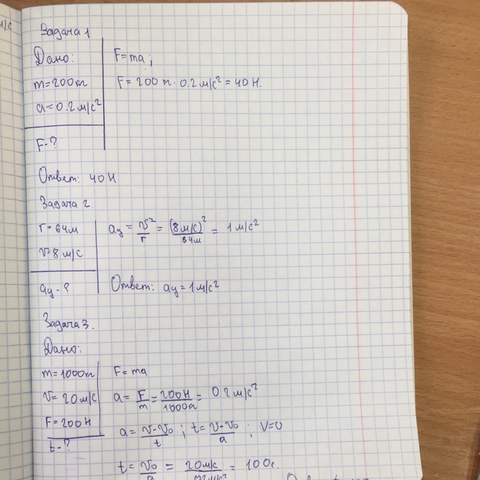 Задача 1
Дано:
m=200кг
a=0.2 м/с²
F-?
F=ma,
F=200 кг · 0.2 м/с² = 40 Н.
Ответ: 40 Н
Задача 2
r=64м
v=8 м/с
aу-?
aу = v²/r = (8 м/с)²/64м = 1 м/с²
Ответ: aу=1 м/с²
Задача 3.
Дано:
m=1000кг
v=20м/с
F=200Н
t-?
F=ma
a = F/m = 200Н/1000 = 0.2 м/с²
a = v-v₀/t ; t = v-v₀/a ; V=0
t = v₀/a = = 100с